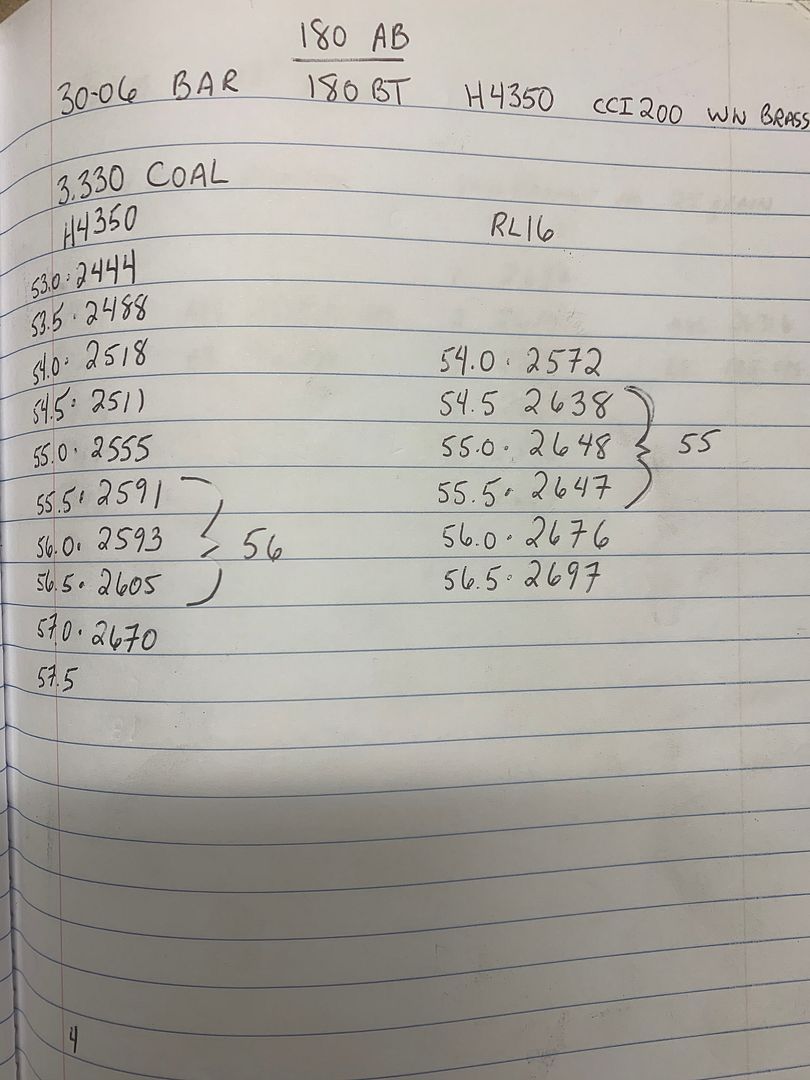 180 AB
30-06 BAR 180 BT H4350 CCI 200 WN BRASS
3.330 COAL
H4350 RL16
53.0 · 2444
53.5 · 2488
54.0 · 2518 54.0 · 2572
54.5 · 2511 54.5 2638
55.0 · 2555 55.0 · 2648 55
55.5 · 2591 55.5 · 2647
56.0 · 2593 56 56.0 · 2676
56.5 · 2605 56.5 · 2697
57.0 · 2670
57.5
4